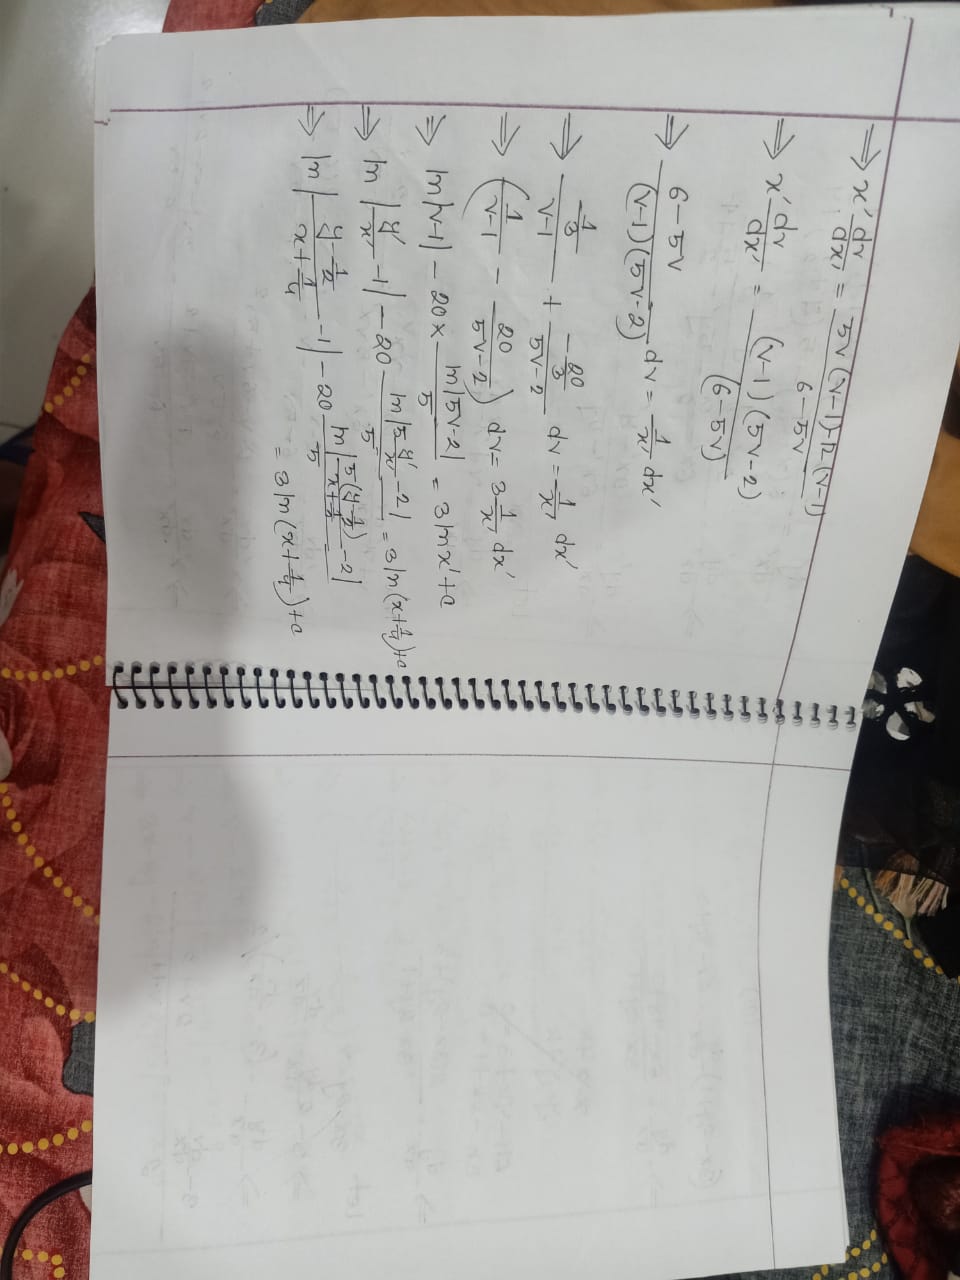 ⇒ x' dv/dx' = 5v(v-1)-2(v-1) / 6-5v
⇒ x' dv/dx' = (v-1)(5v-2) / (6-5v)
⇒ 6-5v / (v-1)(5v-2) dv = 1/x' dx'
⇒ 1/3 / v-1 + -20/3 / 5v-2 dv = 1/x' dx'
⇒ (1/v-1 - 20/5v-2) dv = 3 1/x' dx'
⇒ ln|v-1| - 20 × ln|5v-2| / 5 = 3 ln x' + c
⇒ ln|y'/x' -1| - 20 ln|5y'/x' -2| / 5 = 3 ln(x+1/4)+c
⇒ ln| y-1/2 / x+1/4 -1| - 20 ln| 5(y-1/2) / x+1/4 -2| / 5
= 3 ln(x+1/4)+c